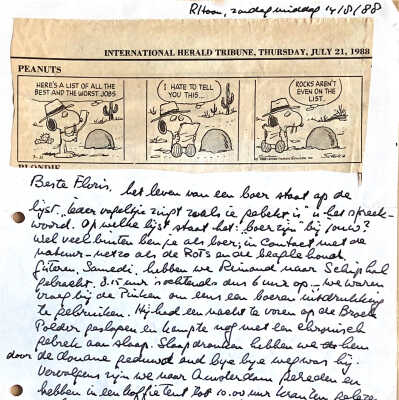 R'Hoon, zondag middag 14/8/88
INTERNATIONAL HERALD TRIBUNE, THURSDAY, JULY 21, 1988
PEANUTS
HERE'S A LIST OF ALL THE BEST AND THE WORST JOBS
I HATE TO TELL YOU THIS...
ROCKS AREN'T EVEN ON THE LIST..
BLONDIE
Beste Floris, het leven van een boer staat op de
lijst. "Ieder vogeltje zingt zoals ie gebekt is" is het spreek-
woord. Op welke lijst staat het: boer zijn bij jouw?
Wel veel buiten ben je als boer, in contact met de
natuur - net zo als de ROTS en die hond
gisteren, Samedi, hebben we Reinoud naar Schiphol
gebracht. 8.15 uur 's ochtends dus 6 uur op - we waren
vroeg bij de om eens een boeren uitdrukking
te gebruiken. Hij had een nacht te voren op de Broek
Polder geslapen en kampte nog met een chronisch
gebrek aan slaap. Slaapdronken hebben we hem
door de douane geduwd and bye bye weg was hij.
Vervolgens zijn we naar Amsterdam gereden en
hebben in een koffietent tot 10.00 uur kranten gelezen